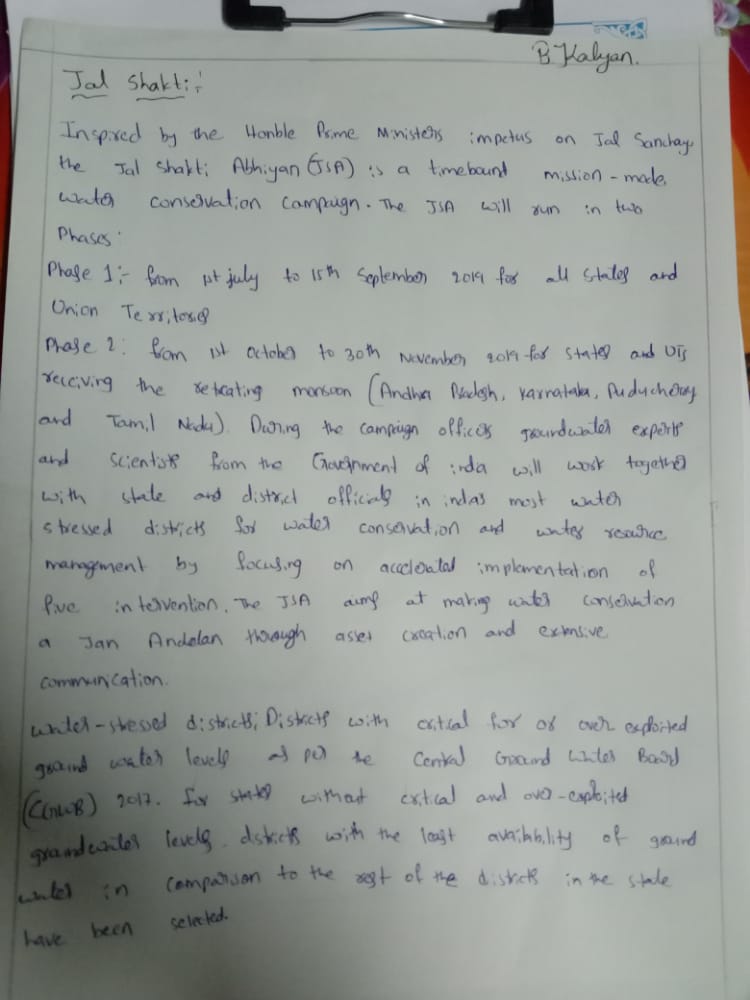 B Kalyan.
Jal Shakti:-
Inspired by the Honble Prime Ministers impetus on Jal Sanchay,
the Jal Shakti Abhiyan (JSA) is a timebound mission-mode
water conservation campaign. The JSA will run in two
Phases.
Phase 1:- from 1st july to 15th September 2019 for all states and
Union Territories
Phase 2: from 1st October to 30th November 2019 for states and UTs
receiving the retreating monsoon (Andhra Pradesh, Karnataka, Puducherry
and Tamil Nadu). During the campaign officers groundwater experts
and scientists from the Government of inda will work together
with state and district officials in indas most water
stressed districts for water conservation and water resource
management by focusing on accelerated implementation of
five intervention. The JSA aims at making water conservation
a Jan Andolan through asset creation and extensive
communication.
Water-stressed districts; Districts with critical for or over exploited
ground water levels as per the Central Ground Water Board
(CGWB) 2017. for states without critical and over-exploited
groundwater levels. districts with the least availability of ground
water in comparison to the rest of the districts in the state
have been selected.